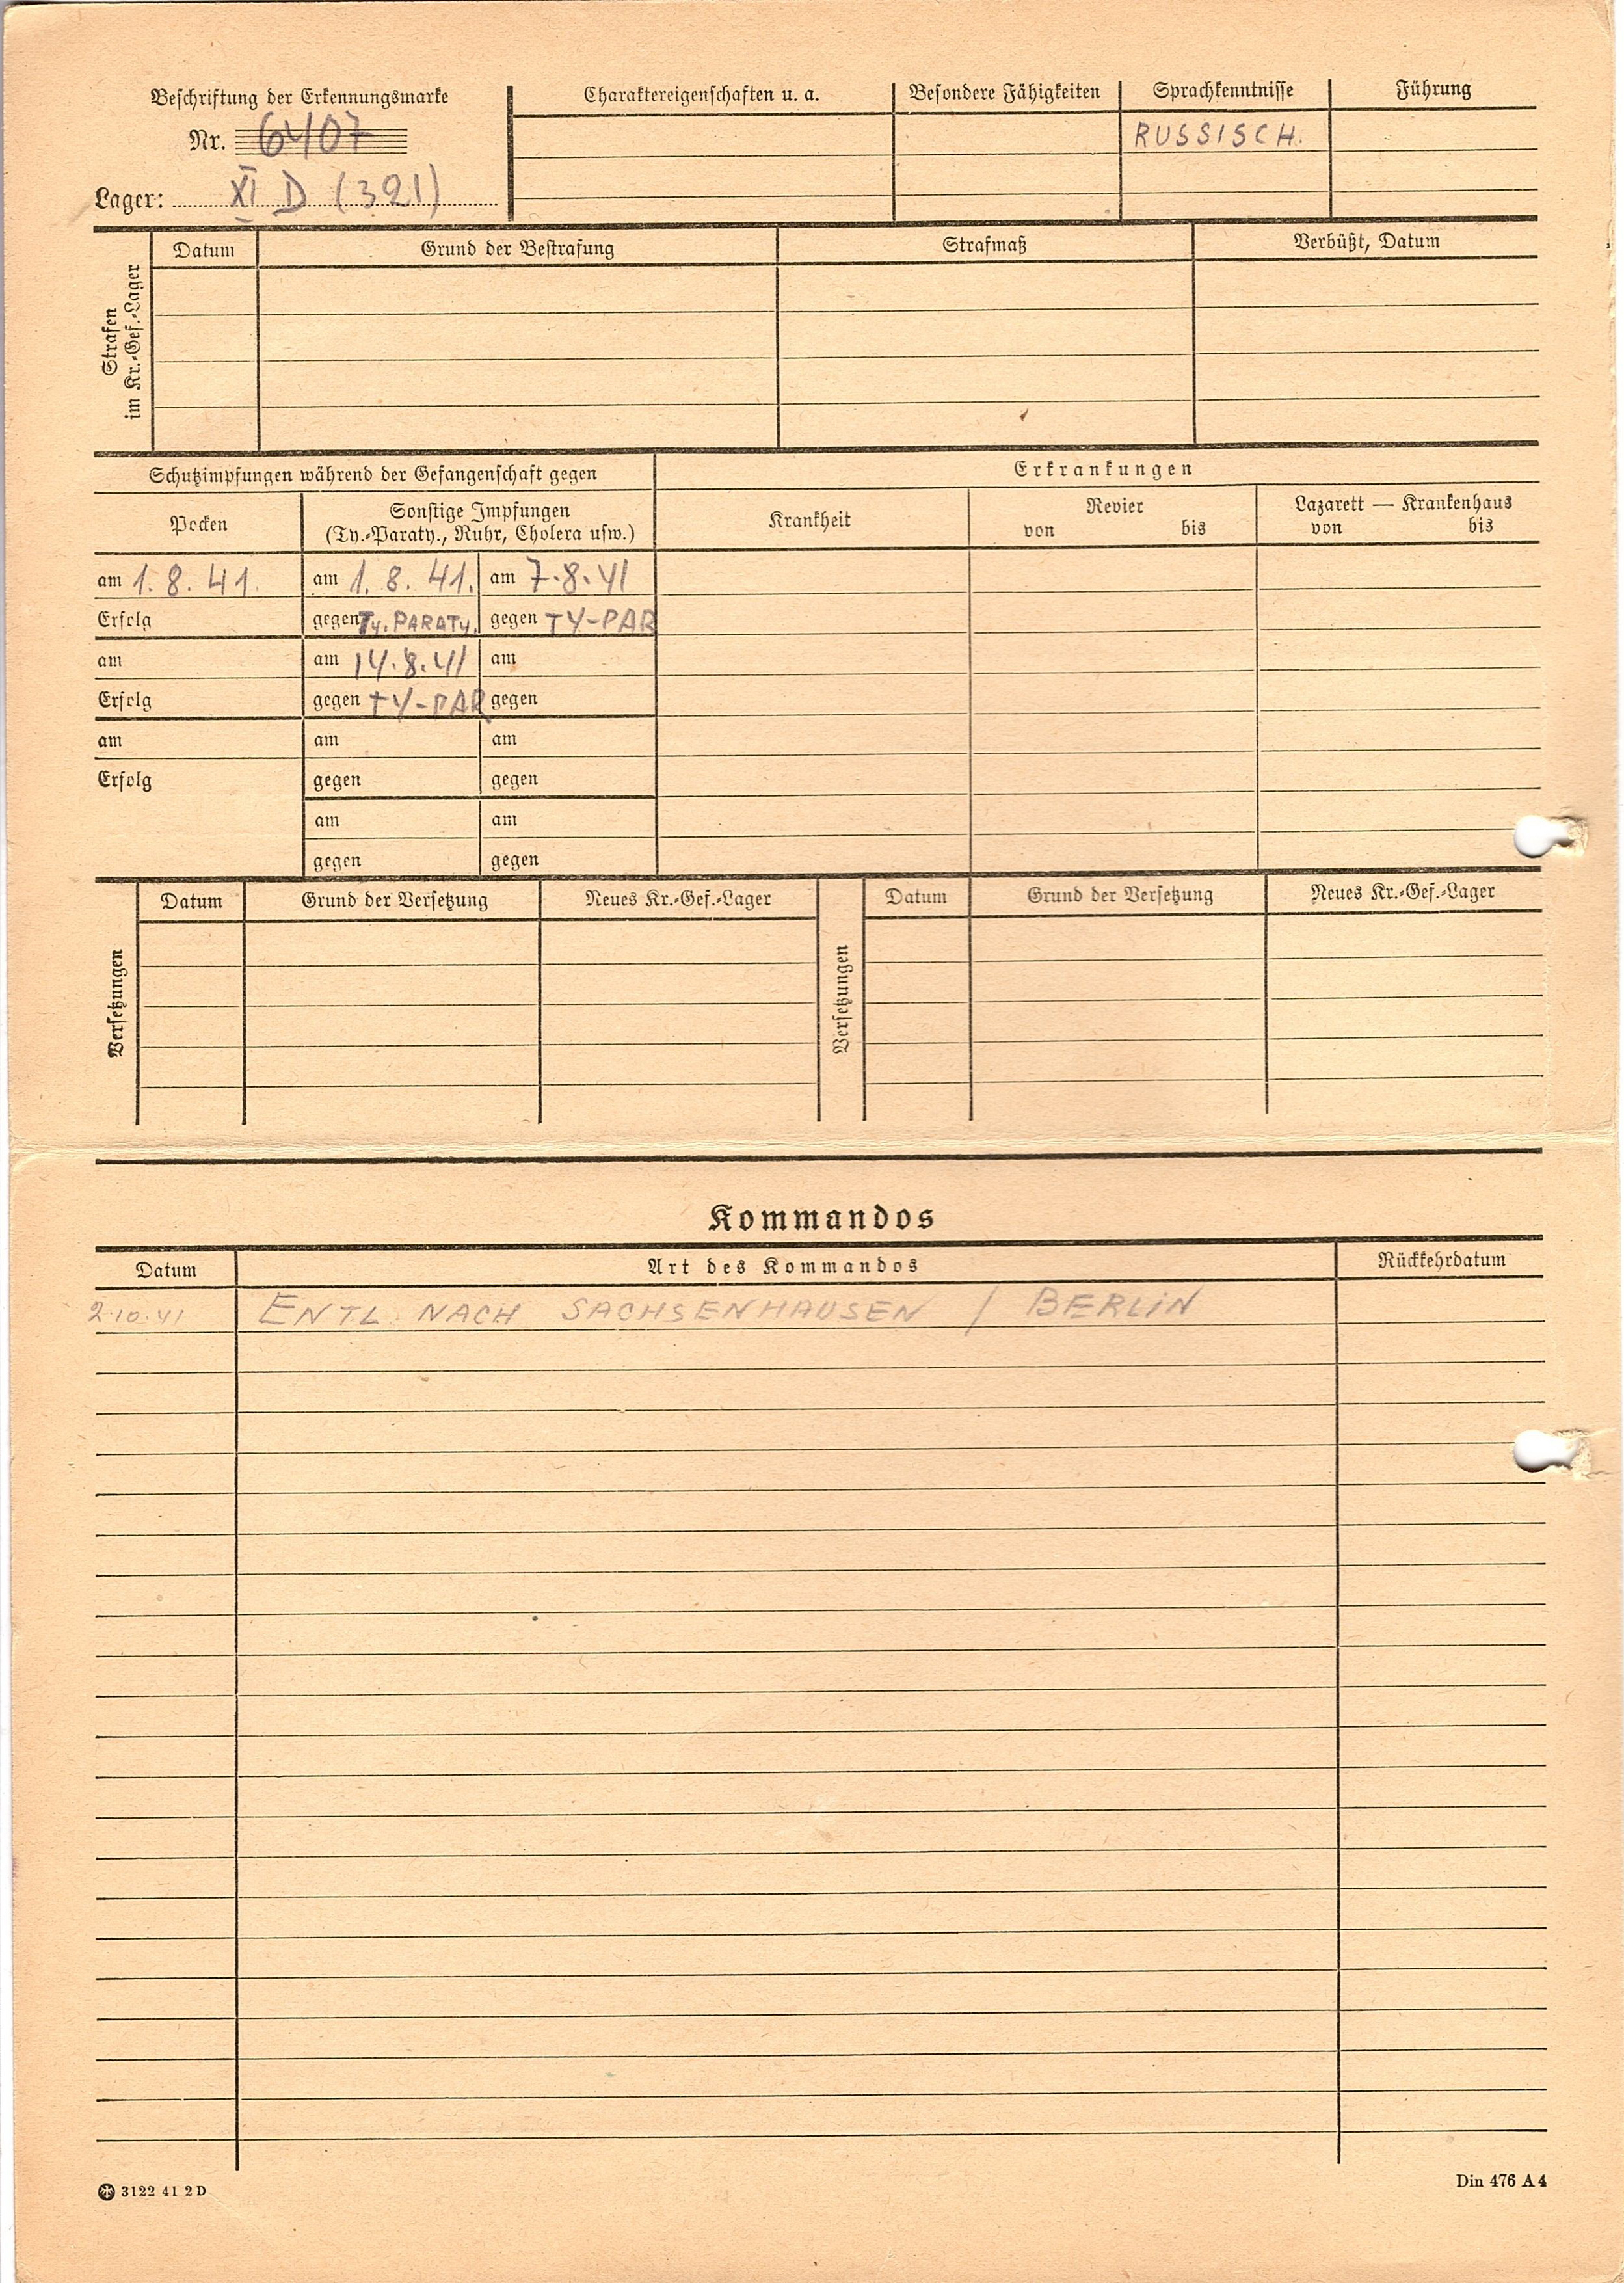 Beschriftung der Erkennungsmarke
Nr. 6407
Lager: XI D (321)
Charaktereigenschaften u. a.
Besondere Fähigkeiten
Sprachkenntnisse
Führung
RUSSISCH.
Strafen
im Kr.-Gef.-Lager
Datum
Grund der Bestrafung
Strafmaß
Verbüßt, Datum
Schutzimpfungen während der Gefangenschaft gegen
Erkrankungen
Pocken
Sonstige Impfungen
(Ty.-Paraty., Ruhr, Cholera usw.)
Krankheit
Revier
von bis
Lazarett — Krankenhaus
von bis
am 1. 8. 41. am 1. 8. 41. am 7.8.41
Erfolg gegen Ty. PARATy. gegen TY-PAR
am am 14.8.41 am
Erfolg gegen TY-PAR gegen
am am am
Erfolg gegen gegen
am am
gegen gegen
Versetzungen
Datum
Grund der Versetzung
Neues Kr.-Gef.-Lager
Versetzungen
Datum
Grund der Versetzung
Neues Kr.-Gef.-Lager
Kommandos
Datum
Art des Kommandos
Rückkehrdatum
2.10.41 ENTL. NACH SACHSENHAUSEN / BERLIN
3122 41 2 D
Din 476 A 4